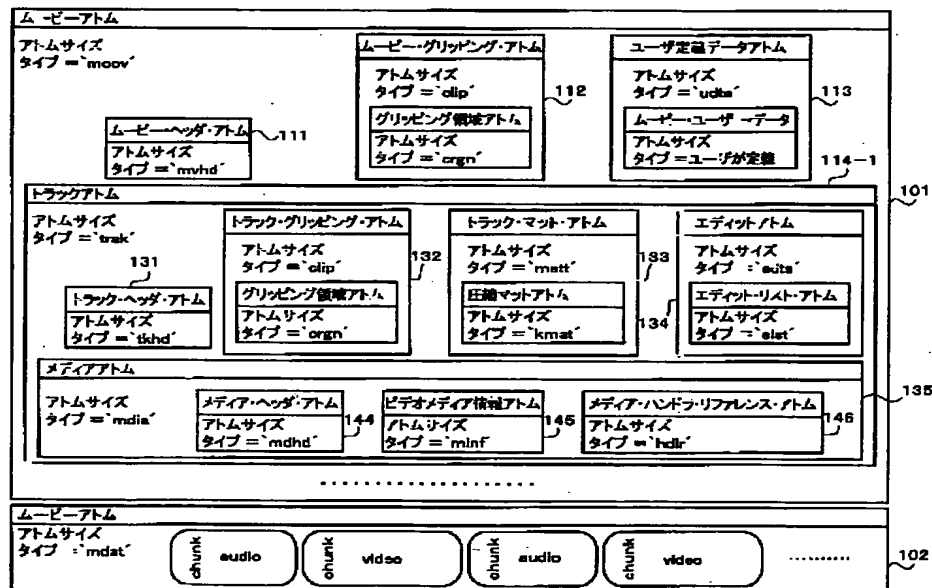 ムービーアトム
アトムサイズ
タイプ＝`moov´
ムービー・グリッピング・アトム
アトムサイズ
タイプ＝`clip´
グリッピング領域アトム
アトムサイズ
タイプ＝`crgn´
112
ユーザ定義データアトム
アトムサイズ
タイプ＝`udta´
ムービー・ユーザーデータ
アトムサイズ
タイプ＝ユーザが定義
113
ムービー・ヘッダ・アトム
アトムサイズ
タイプ＝`mvhd´
111
114-1
101
トラックアトム
アトムサイズ
タイプ＝`trak´
131
トラック・ヘッダ・アトム
アトムサイズ
タイプ＝`tkhd´
トラック・グリッピング・アトム
アトムサイズ
タイプ＝`clip´
グリッピング領域アトム
アトムサイズ
タイプ＝`crgn´
132
トラック・マット・アトム
アトムサイズ
タイプ＝`matt´
圧縮マットアトム
アトムサイズ
タイプ＝`kmat´
133
エディットアトム
アトムサイズ
タイプ＝`edts´
エディット・リスト・アトム
アトムサイズ
タイプ＝`elst´
134
メディアアトム
アトムサイズ
タイプ＝`mdia´
135
メディア・ヘッダ・アトム
アトムサイズ
タイプ＝`mdhd´
144
ビデオメディア情報アトム
アトムサイズ
タイプ＝`minf´
145
メディア・ハンドラ・リファレンス・アトム
アトムサイズ
タイプ＝`hdlr´
146
ムービーアトム
アトムサイズ
タイプ＝`mdat´
chunk audio
chunk video
chunk audio
chunk video
102